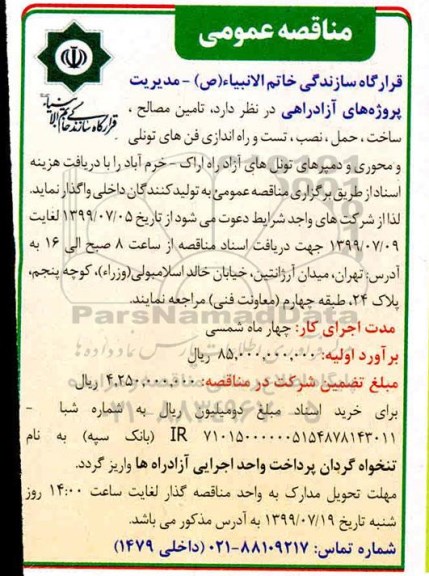 مناقصه عمومی
قرارگاه سازندگی خاتم الانبیاء
قرارگاه سازندگی خاتم الانبیاء(ص) - مدیریت
پروژه‌های آزادراهی در نظر دارد، تامین مصالح ،
ساخت ، حمل ، نصب ، تست و راه اندازی فن های تونلی
و محوری و دمپرهای تونل های آزاد راه اراک - خرم آباد را با دریافت هزینه
اسناد از طریق برگزاری مناقصه عمومی به تولیدکنندگان داخلی واگذار نماید.
لذا از شرکت های واجد شرایط دعوت می شود از تاریخ ۱۳۹۹/۰۷/۰۵ لغایت
۱۳۹۹/۰۷/۰۹ جهت دریافت اسناد مناقصه از ساعت ۸ صبح الی ۱۶ به
آدرس: تهران، میدان آرژانتین، خیابان خالد اسلامبولی(وزراء)، کوچه پنجم،
پلاک ۲۴، طبقه چهارم (معاونت فنی) مراجعه نمایند.
ParsNamadData
مدت اجرای کار: چهار ماه شمسی
برآورد اولیه: ۸۵,۰۰۰,۰۰۰,۰۰۰ ریال
مبلغ تضمین شرکت در مناقصه: ۴,۲۵۰,۰۰۰,۰۰۰ ریال
۰۲۱-۸۸۳۴۹۶۷۰-۵
برای خرید اسناد مبلغ دومیلیون ریال به شماره شبا -
IR ۷۱۰۱۵۰۰۰۰۰۰۵۱۵۴۸۷۸۱۴۳۰۱۱ (بانک سپه) به نام
تنخواه گردان پرداخت واحد اجرایی آزادراه ها واریز گردد.
مهلت تحویل مدارک به واحد مناقصه گذار لغایت ساعت ۱۴:۰۰ روز
شنبه تاریخ ۱۳۹۹/۰۷/۱۹ به آدرس مذکور می باشد.
شماره تماس: ۸۸۱۰۹۲۱۷-۰۲۱ (داخلی ۱۴۷۹)